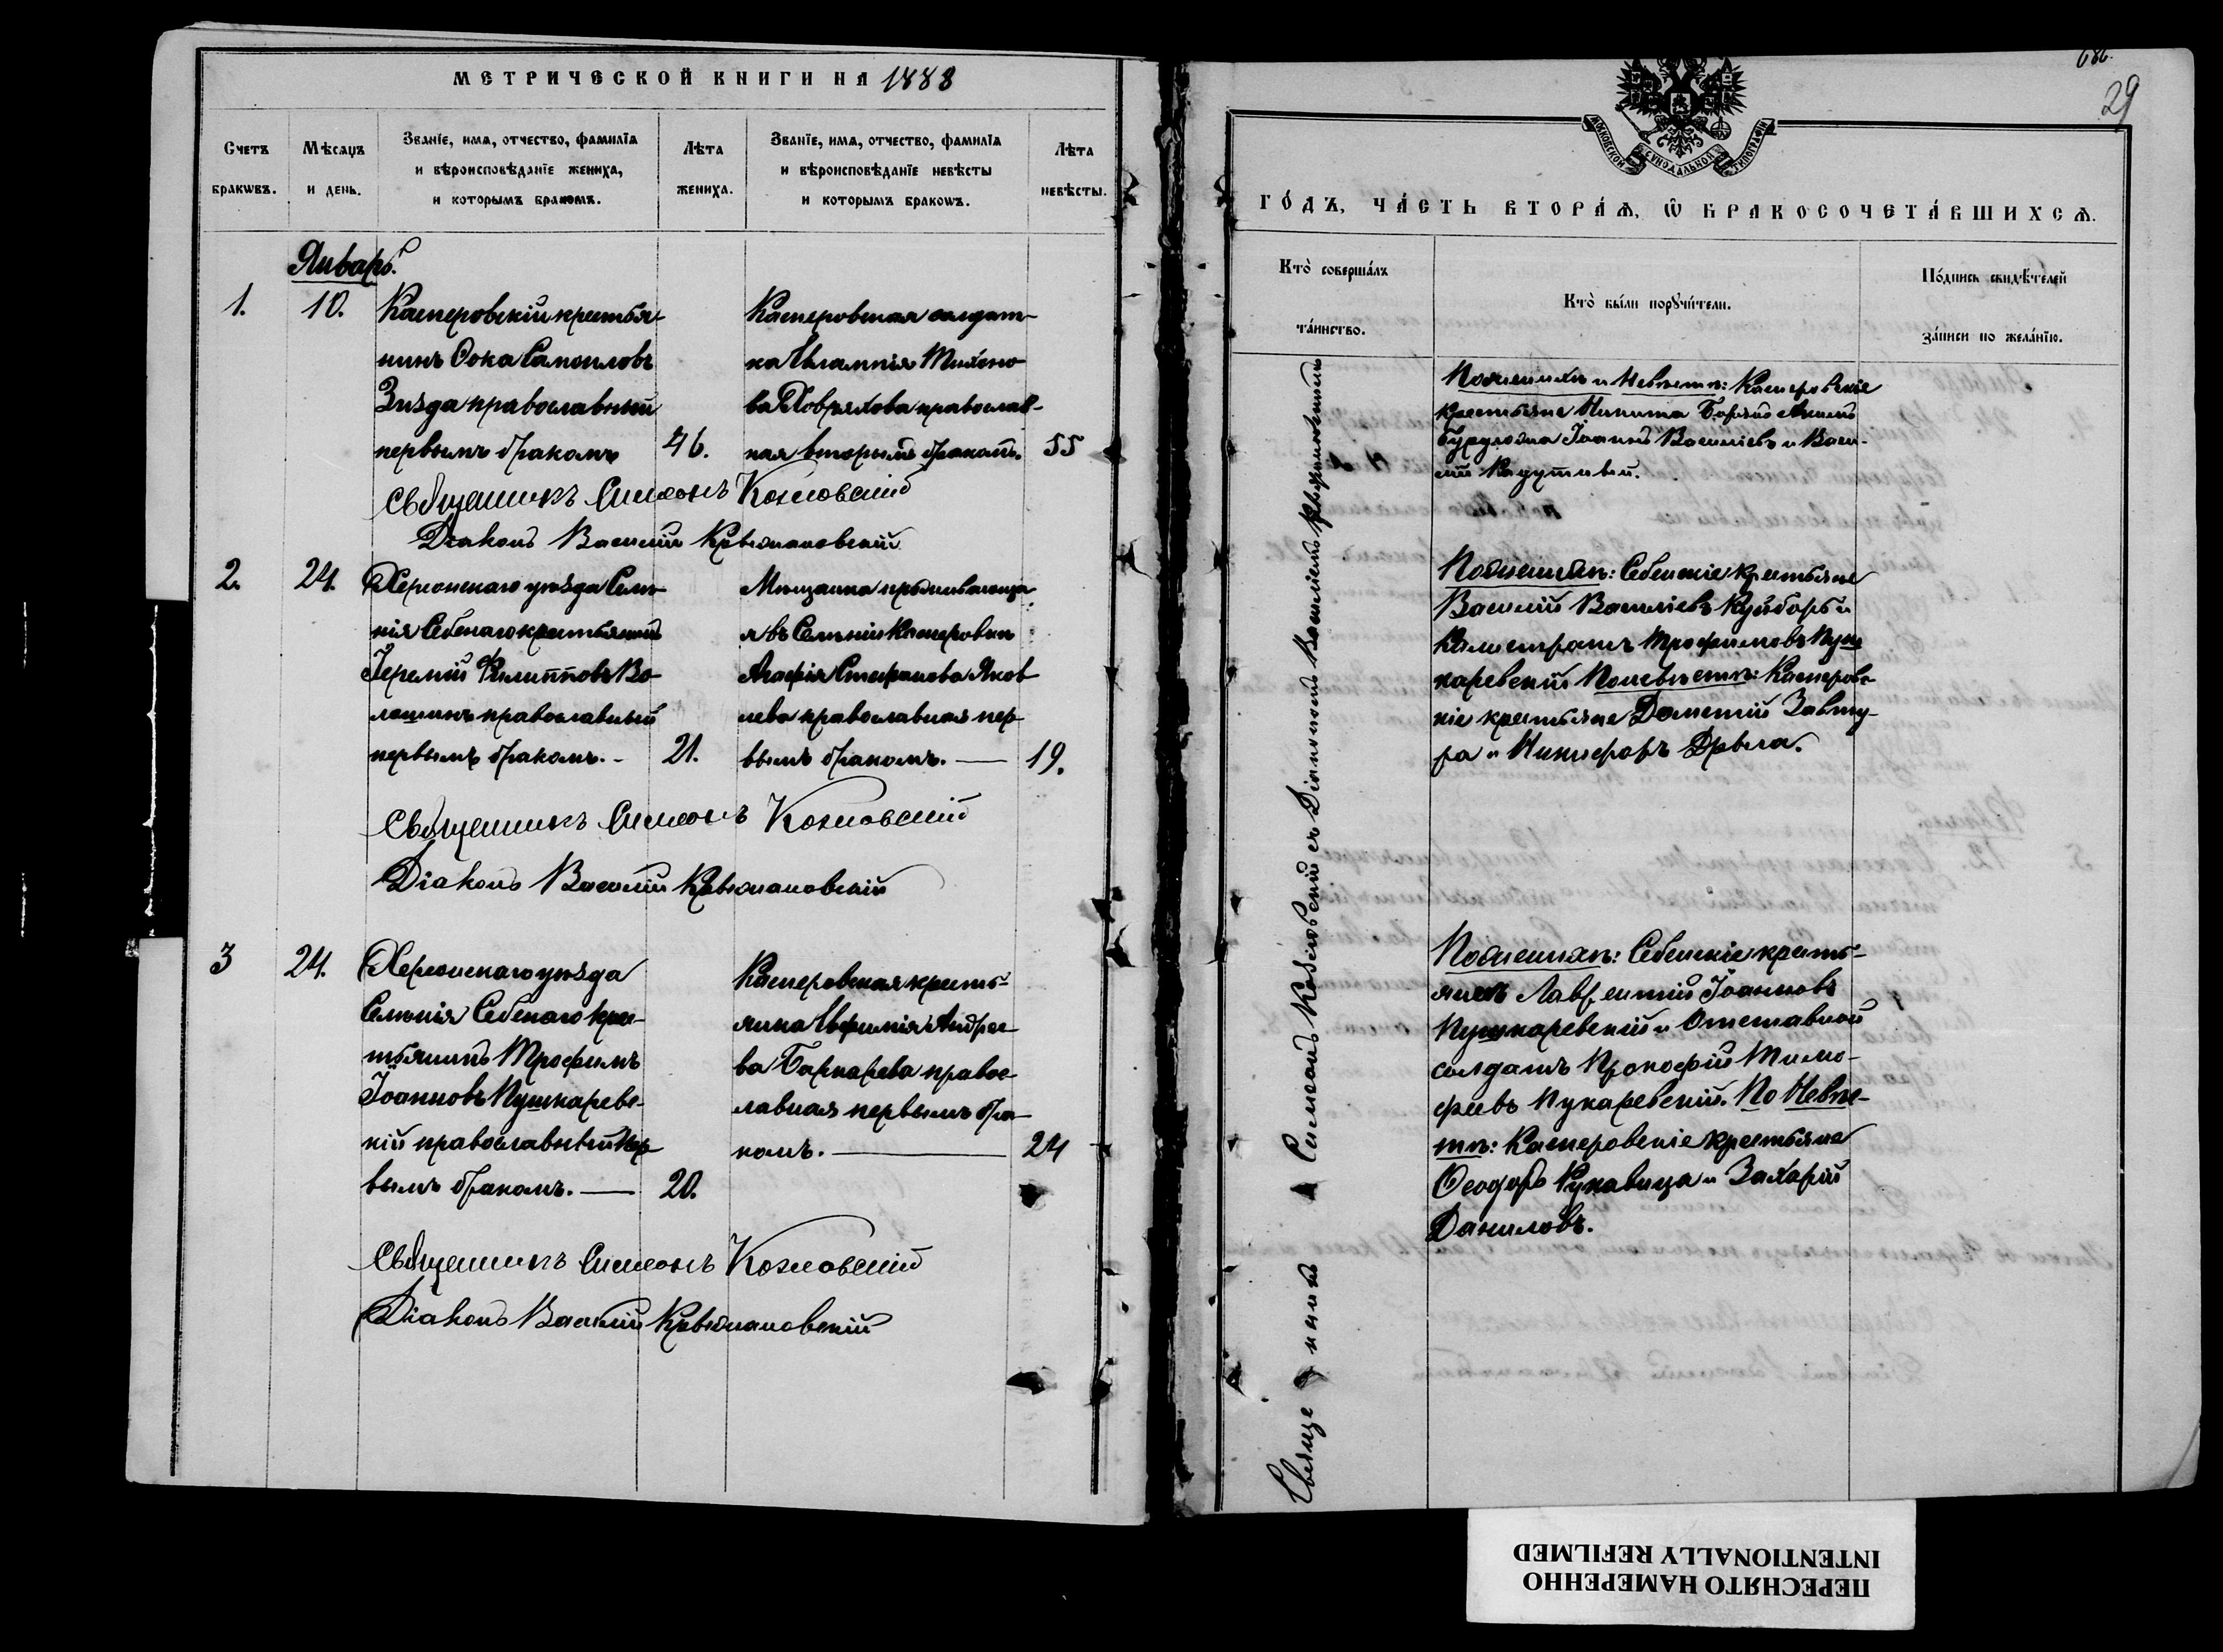 МЕТРИЧЕСКОЙ КНИГИ НА 1888
Счетъ браковъ.
Мѣсяцъ и день.
Званіе, имя, отчество, фамилія
и вѣроисповѣданіе жениха,
и которымъ бракомъ.
Лѣта жениха.
Званіе, имя, отчество, фамилія
и вѣроисповѣданіе невѣсты
и которымъ бракомъ.
Лѣта невѣсты.
Январь.
1. 10.
Касперовскій крестья-
нинъ Ѳока Самоиловъ
православный
первымъ бракомъ 46.
Касперовская солдат-
ка Евлампія Тихоно-
ва православ-
ная вторымъ бракомъ. 55
Священникъ Симеонъ Козловскій
Діаконъ Василій
2. 24.
Херсонскаго уѣзда Селе-
нія Себенаго крестьянинъ
Іеремій Филипповъ Во-
лошинъ православный
первымъ бракомъ. - 21.
Мѣщанка проживающа-
я въ Селеніи Касперовки
Агафія Стефанова Яков-
лева православная пер-
вымъ бракомъ. — 19.
Священникъ Симеонъ Козловскій
Діаконъ Василій
3 24.
Херсонскаго уѣзда
Селенія Себенаго кре-
стьянинъ Трофимъ
Іоанновъ Пушкаревс-
кій православный пер-
вымъ бракомъ. — 20.
Касперовская кресть-
янка Евфимія Андрее-
ва правос-
лавная первымъ бра-
комъ. — 24
Священникъ Симеонъ Козловскій
Діаконъ Василій
29
МОСКОВСКОЙ СѴНОДАЛЬНОЙ ТИПОГРАФІИ
ГО́ДЪ, ЧА́СТЬ ВТОРА́Я, Ѿ БРАКОСОЧЕТА́ВШИХСЯ.
Кто̀ соверша́лъ
та́инство.
Кто̀ бы́ли поручи́тели.
По́дпись свидѣ́телей
за́писи по жела́нїю.
Священникъ Симеонъ Козловскій съ Діакономъ Василіемъ
По женихѣ и Невѣстѣ: Касперовскіе
крестьяне Никита
Іоаннъ Василіевъ и Васи-
лій
По женихѣ: Себенскіе крестьяне
Василій Василіевъ и
Калистратъ Трофимовъ Пуш-
каревскій По невѣстѣ: Касперовс-
кіе крестьяне Дометій Завту-
ра и Никифоръ
По женихѣ: Себенскіе кресть-
яне Лаврентій Іоанновъ
Пушкаревскій и Отставной
солдатъ Прокофій Тимо-
феевъ Пукаревскій. По Невѣс-
тѣ: Касперовскіе крестьяне
Ѳеодоръ Рукавица и Захарій
Даниловъ.
ПЕРЕСНЯТО НАМЕРЕННО
INTENTIONALLY REFILMED